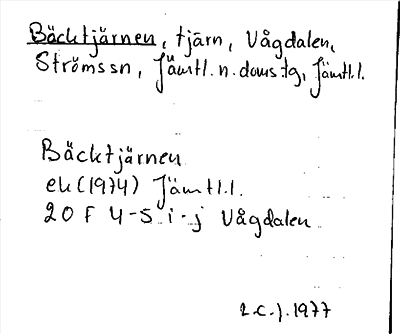 Bäcktjärnen, tjärn, Vågdalen,
Strömssn, Jämtl. n. doms.tg, Jämtl.l.
Bäcktjärnen
ek (1974) Jämtl.l.
20 F 4-5 i-j Vågdalen
2.c.j. 1977